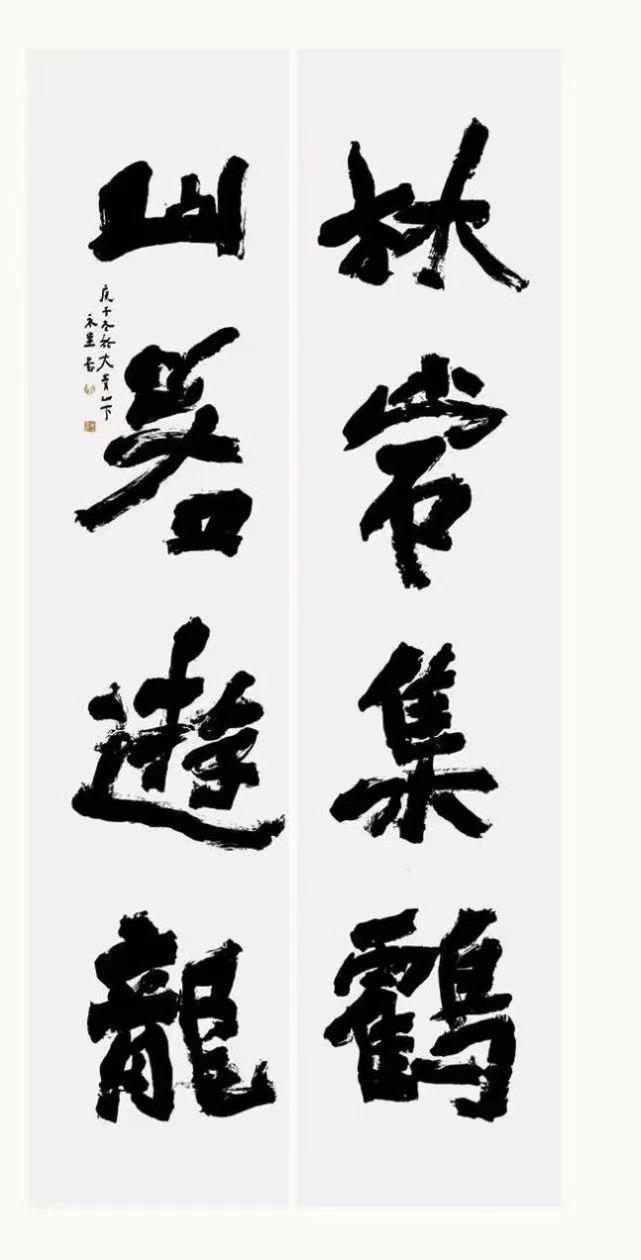 林常集鶴
山若遊龍
庚子冬於大青山下
永星書